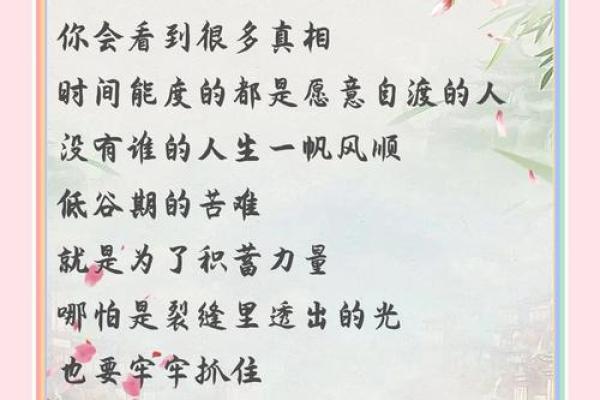 你会看到很多真相
时间能度的都是愿意自渡的人
没有谁的人生一帆风顺
低谷期的苦难
就是为了积蓄力量
哪怕是裂缝里透出的光
也要牢牢抓住